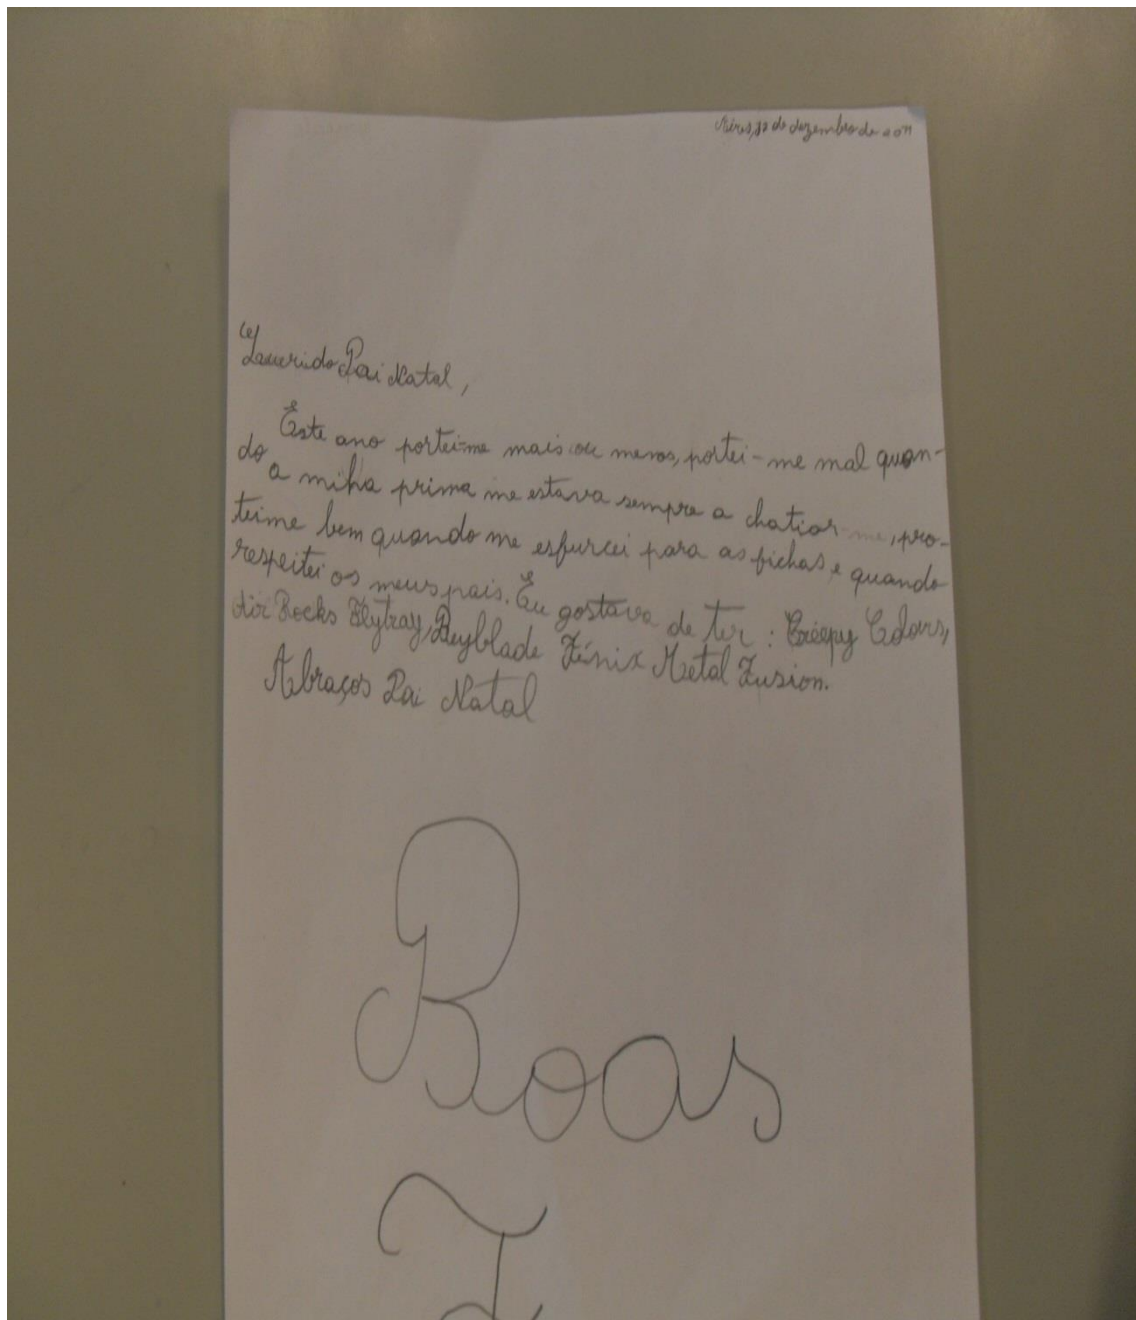 de dezembro de 2011
Querido Pai Natal,
Este ano portei-me mais ou menos, portei-me mal quan-
do a miha prima me estava sempre a chatiar me, pro-
teime bem quando me esfurcei para as fichas e quando
respeitei os meus pais. Eu gostava de ter : Creepy Colors,
Air Rocks Flytray, Beyblade Fénix Metal Fusion.
Abraços Pai Natal
Boas
F